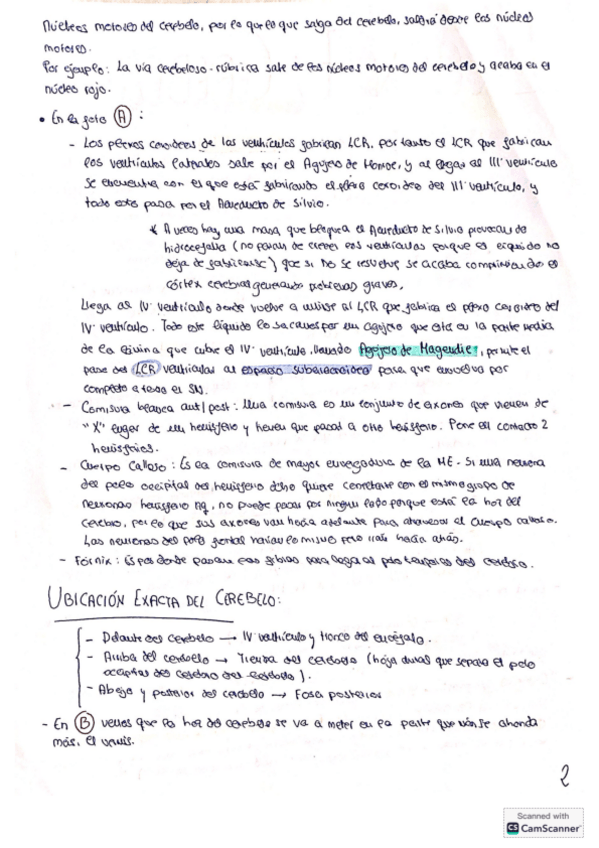 Núcleos motores del cerebelo, por lo que lo que salga del cerebelo, saldrá desde los núcleos
motores.
Por ejemplo: La vía cerebeloso-rúbrica sale de los núcleos motores del cerebelo y acaba en el
núcleo rojo.
• En la foto (A) :
- Los plexos coroideos de los ventrículos fabrican LCR, por tanto el LCR que fabrican
los ventrículos laterales sale por el Agujero de Monroe, y al llegar al III ventrículo
se encuentra con el que está fabricando el plexo coroideo del III ventrículo, y
todo esto pasa por el Acueducto de Silvio.
* A veces hay una masa que bloquea el Acueducto de Silvio provocando
hidrocefalia (no paran de crecer los ventrículos porque el líquido no
deja de fabricarse) que si no se resuelve se acaba comprimiendo el
córtex cerebral generando problemas graves.
Llega al IV ventrículo donde vuelve a unirse al LCR que fabrica el plexo coroideo del
IV ventrículo. Todo ese líquido lo sacamos por un agujero que está en la parte media
de la que cubre el IV ventrículo, llamado Agujero de Magendie, permite el
paso del LCR ventricular al espacio subaracnoideo para que envuelva por
completo a todo el SN.
- Comisura blanca ant/post: Una comisura es un conjunto de axones que vienen de
"X" lugar de un hemisferio y tienen que pasar a otro hemisferio. Pone en contacto 2
hemisferios.
- Cuerpo Calloso: Es la comisura de mayor envergadura de la ME. Si una neurona
del polo occipital del hemisferio dcho quiere conectarse con el mismo grupo de
neuronas hemisferio izq, no puede pasar por ningún lado porque está la hoz del
cerebro, por lo que sus axones van hacia adelante para atravesar el cuerpo calloso.
Las neuronas del polo frontal harían lo mismo pero irían hacia atrás.
- Fórnix: Es por donde pasan las fibras para llegar al polo temporal del cerebro.
UBICACIÓN EXACTA DEL CEREBELO:
- Delante del cerebelo → IV ventrículo y tronco del encéfalo.
- Arriba del cerebelo → Tienda del cerebelo (hoja dural que separa el polo
occipital del cerebro del cerebelo).
- Abajo y posterior del cerebelo → Fosa posterior
- En (B) vemos que la hoz del cerebelo se va a meter en la parte que más se ahonda
más, el vermis.
2
Scanned with
CS CamScanner